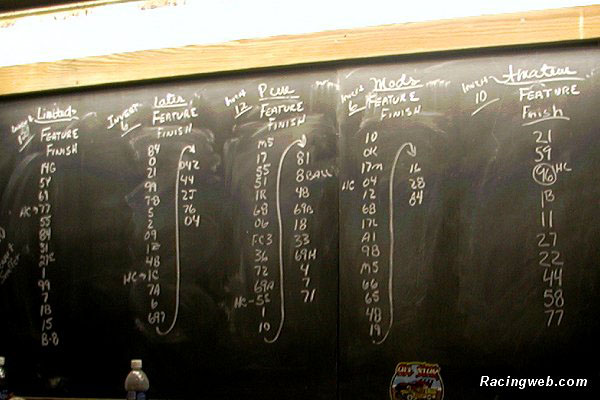 Limited
FEATURE
FINISH
MG
54
69
HC→77
55
84
31
21C
1
99
7
1B
15
B-8
INVERT
6
Lates
FEATURE
FINISH
84
0
21
99
7-8
5
2
09
12
4B
HC→1C
7A
6
69?
042
44
2J
76
04
INVERT
12
Pure
FEATURE
FINISH
M5
17
55
51
1R
68
06
FC3
36
72
69A
HC-5S
1
10
81
8 BALL
48
69B
18
33
69H
4
7
71
INVERT
6
Mods
FEATURE
FINISH
10
0K
17M
HC 04
12
6B
17L
A1
98
M5
66
65
4B
19
16
28
84
INVERT
10
Amateur
FEATURE
Finish
21
59
96 HC
1B
11
27
22
44
58
77
Racingweb.com